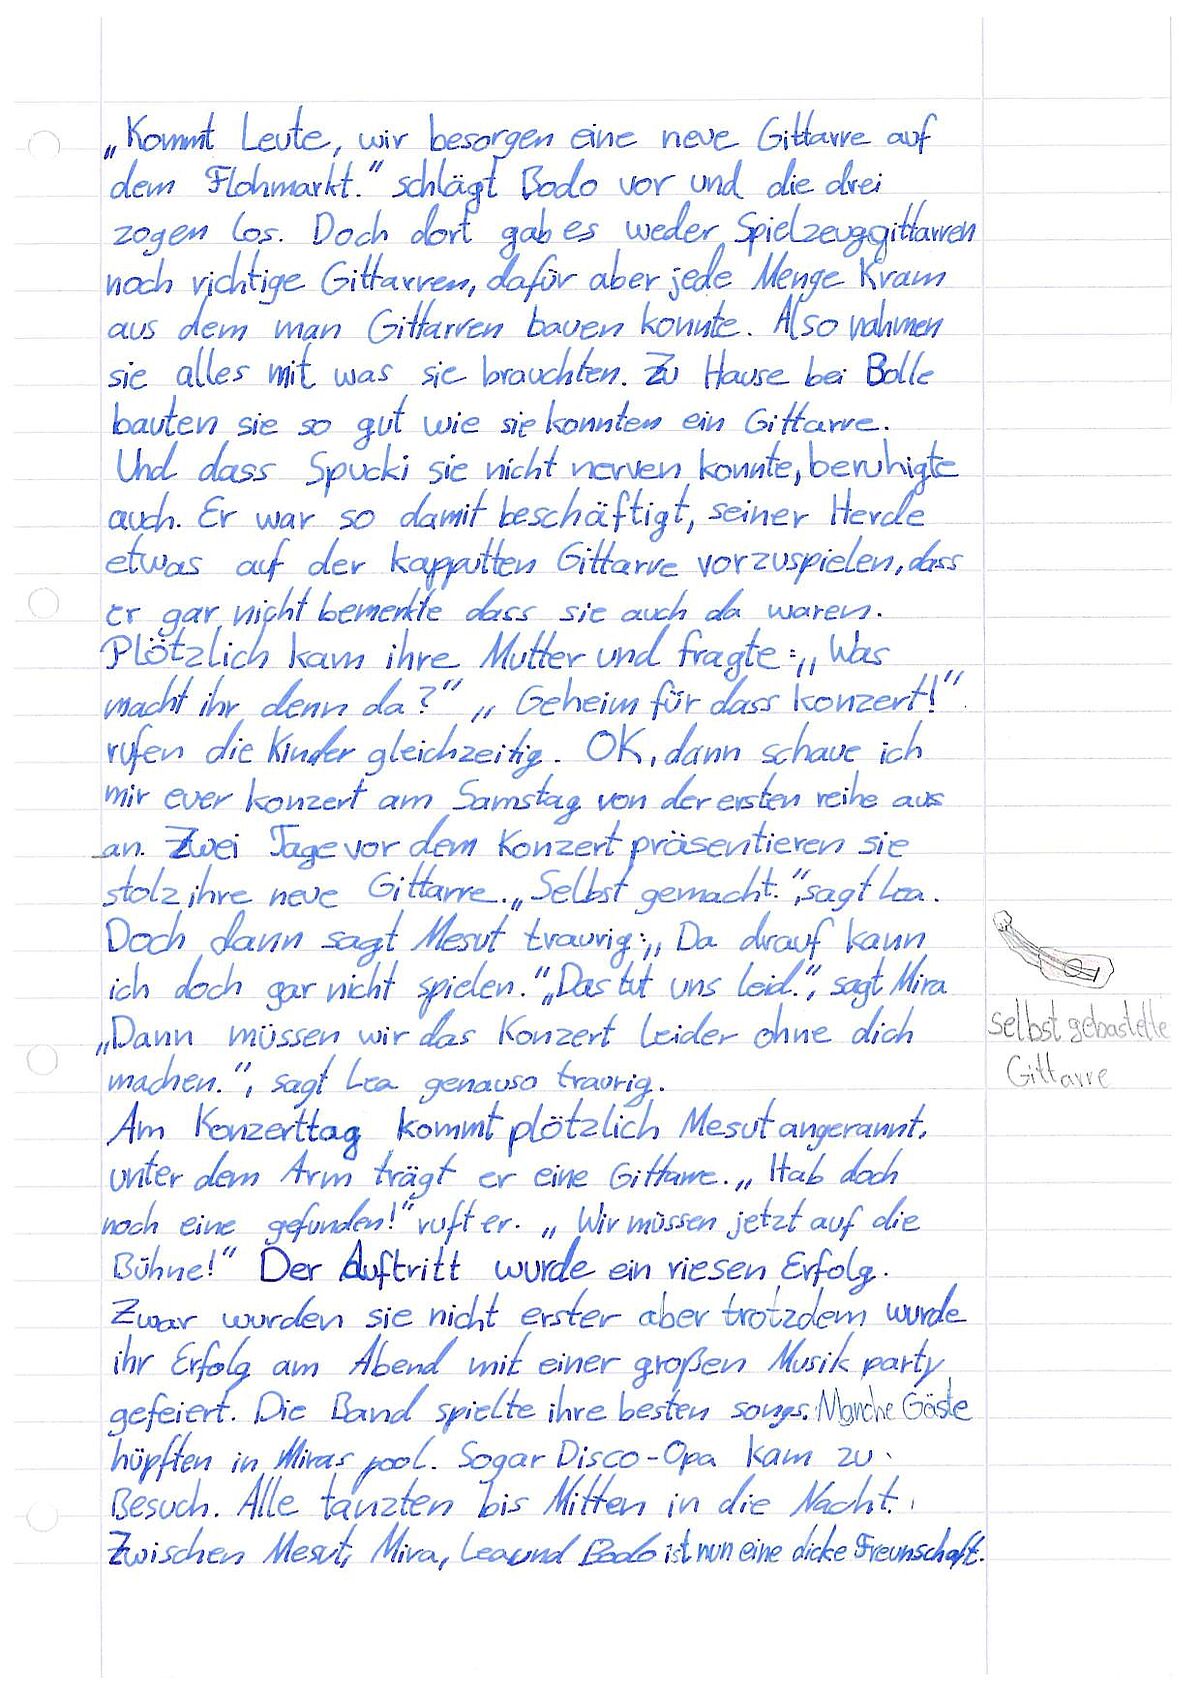 „Kommt Leute, wir besorgen eine neue Gittarre auf
dem Flohmarkt.“ schlägt Bodo vor und die drei
zogen los. Doch dort gab es weder Spielzeuggittarren
noch richtige Gittarren, dafür aber jede Menge Kram
aus dem man Gittarren bauen konnte. Also nahmen
sie alles mit was sie brauchten. Zu Hause bei Bolle
bauten sie so gut wie sie konnten ein Gittarre.
Und dass Spucki sie nicht nerven konnte, beruhigte
auch. Er war so damit beschäftigt, seiner Herde
etwas auf der kapputten Gittarre vorzuspielen, dass
er gar nicht bemerkte dass sie auch da waren.
Plötzlich kam ihre Mutter und fragte: „Was
macht ihr denn da?“ „Geheim für dass konzert!“
rufen die Kinder gleichzeitig. OK, dann schaue ich
mir euer konzert am Samstag von der ersten reihe aus
an. Zwei Tage vor dem Konzert präsentieren sie
stolz ihre neue Gittarre. „Selbst gemacht.“, sagt Lea.
Doch dann sagt Mesut traurig: „Da drauf kann
ich doch gar nicht spielen.“ „Das tut uns leid.“, sagt Mira
„Dann müssen wir das Konzert leider ohne dich
machen.“, sagt Lea genauso traurig.
Am Konzerttag kommt plötzlich Mesut angerannt,
unter dem Arm trägt er eine Gittarre. „Hab doch
noch eine gefunden!“ ruft er. „Wir müssen jetzt auf die
Bühne!“ Der Auftritt wurde ein riesen Erfolg.
Zwar wurden sie nicht erster aber trotzdem wurde
ihr Erfolg am Abend mit einer großen Musik party
gefeiert. Die Band spielte ihre besten songs. Manche Gäste
hüpften in Miras pool. Sogar Disco-Opa kam zu
Besuch. Alle tanzten bis Mitten in die Nacht.
Zwischen Mesut, Mira, Lea und Bodo ist nun eine dicke Freunschaft.
selbst gebastelte
Gittarre